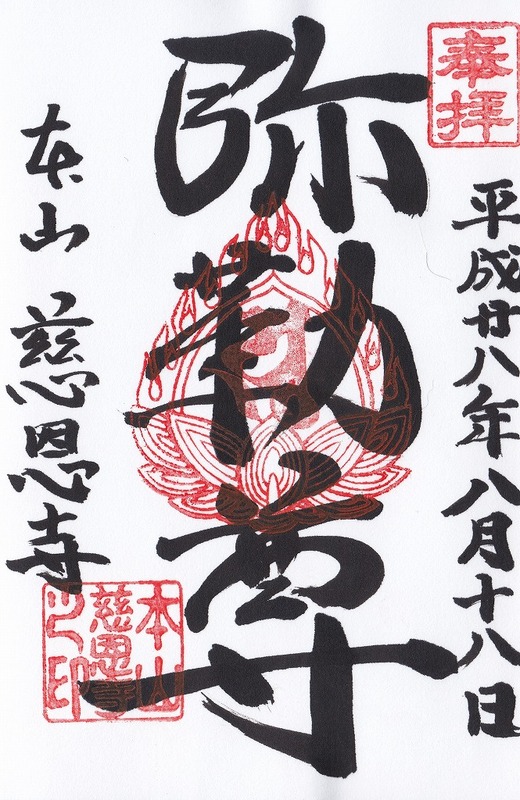 奉拝
平成廿八年八月十八日
弥勒尊
本山 慈恩寺
本山
慈恩寺
之印